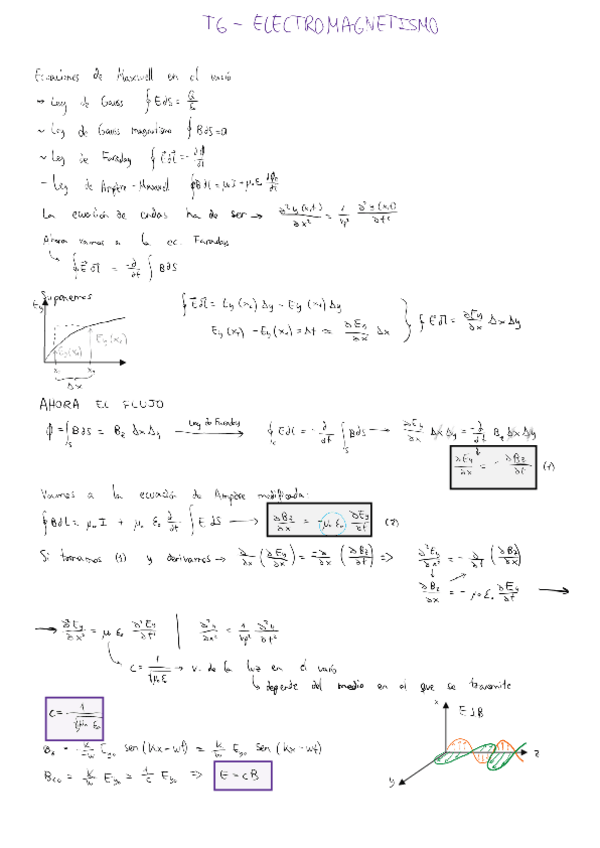 T6 - ELECTROMAGNETISMO
Ecuaciones de Maxwell en el vacío
→ Ley de Gauss ∮ E dS = Q/ε₀
~ Ley de Gauss magnetismo ∮ B dS = 0
~ Ley de Faraday ∮ E⃗ dl⃗ = - dϕ/dt
- Ley de Ampère - Maxwell ∮ B dl = μ₀ I + μ₀ ε₀ dϕ/dt
La ecuación de ondas ha de ser → ∂²y(x,t)/∂x² = 1/v² ∂²y(x,t)/∂t²
Ahora vamos a la ec. Faraday
∮ E⃗ dl⃗ = -∂/∂t ∫ B dS
Suponemos
Ey
Ey(x₂)
Ey(x₁)
x₁ x₂
Δx
∮ E⃗ dl⃗ = Ey(x₂) Δy - Ey(x₁) Δy
Ey(x₂) - Ey(x₁) = Δt ≈ ∂Ey/∂x Δx
∮ E⃗ dl⃗ = ∂Ey/∂x Δx Δy
AHORA EL FLUJO
ϕ = ∫s B dS = Bz Δx Δy
Ley de Faraday
∮c E dl = - ∂/∂t ∫s B dS → ∂Ey/∂x Δx Δy = -∂/∂t Bz Δx Δy
∂Ey/∂x = - ∂Bz/∂t (1)
Vamos a la ecuación de Ampère modificada:
∮ B dL = μ₀ I + μ₀ ε₀ ∂/∂t ∫ E dS → ∂Bz/∂x = -μ₀ ε₀ ∂Ey/∂t (2)
Si tomamos (1) y derivamos → ∂/∂x (∂Ey/∂x) = -∂/∂x (∂Bz/∂t) => ∂²Ey/∂x² = - ∂/∂t (∂Bz/∂x)
∂Bz/∂x = - μ₀ ε₀ ∂Ey/∂t →
→ ∂²Ey/∂x² = μ₀ ε₀ ∂²Ey/∂t² | ∂²y/∂x² = 1/v² ∂²y/∂t²
c = 1/√μ₀ ε₀ → v. de la luz en el vacío
depende del medio en el que se transmite
c = 1/√μ₀ ε₀
Bz = k/w Ey₀ sen (kx - wt) = k/w Ey₀ sen (kx - wt)
Bz₀ = k/w Ey₀ = 1/c Ey₀ => E = cB
x
E ⊥ B
z
y